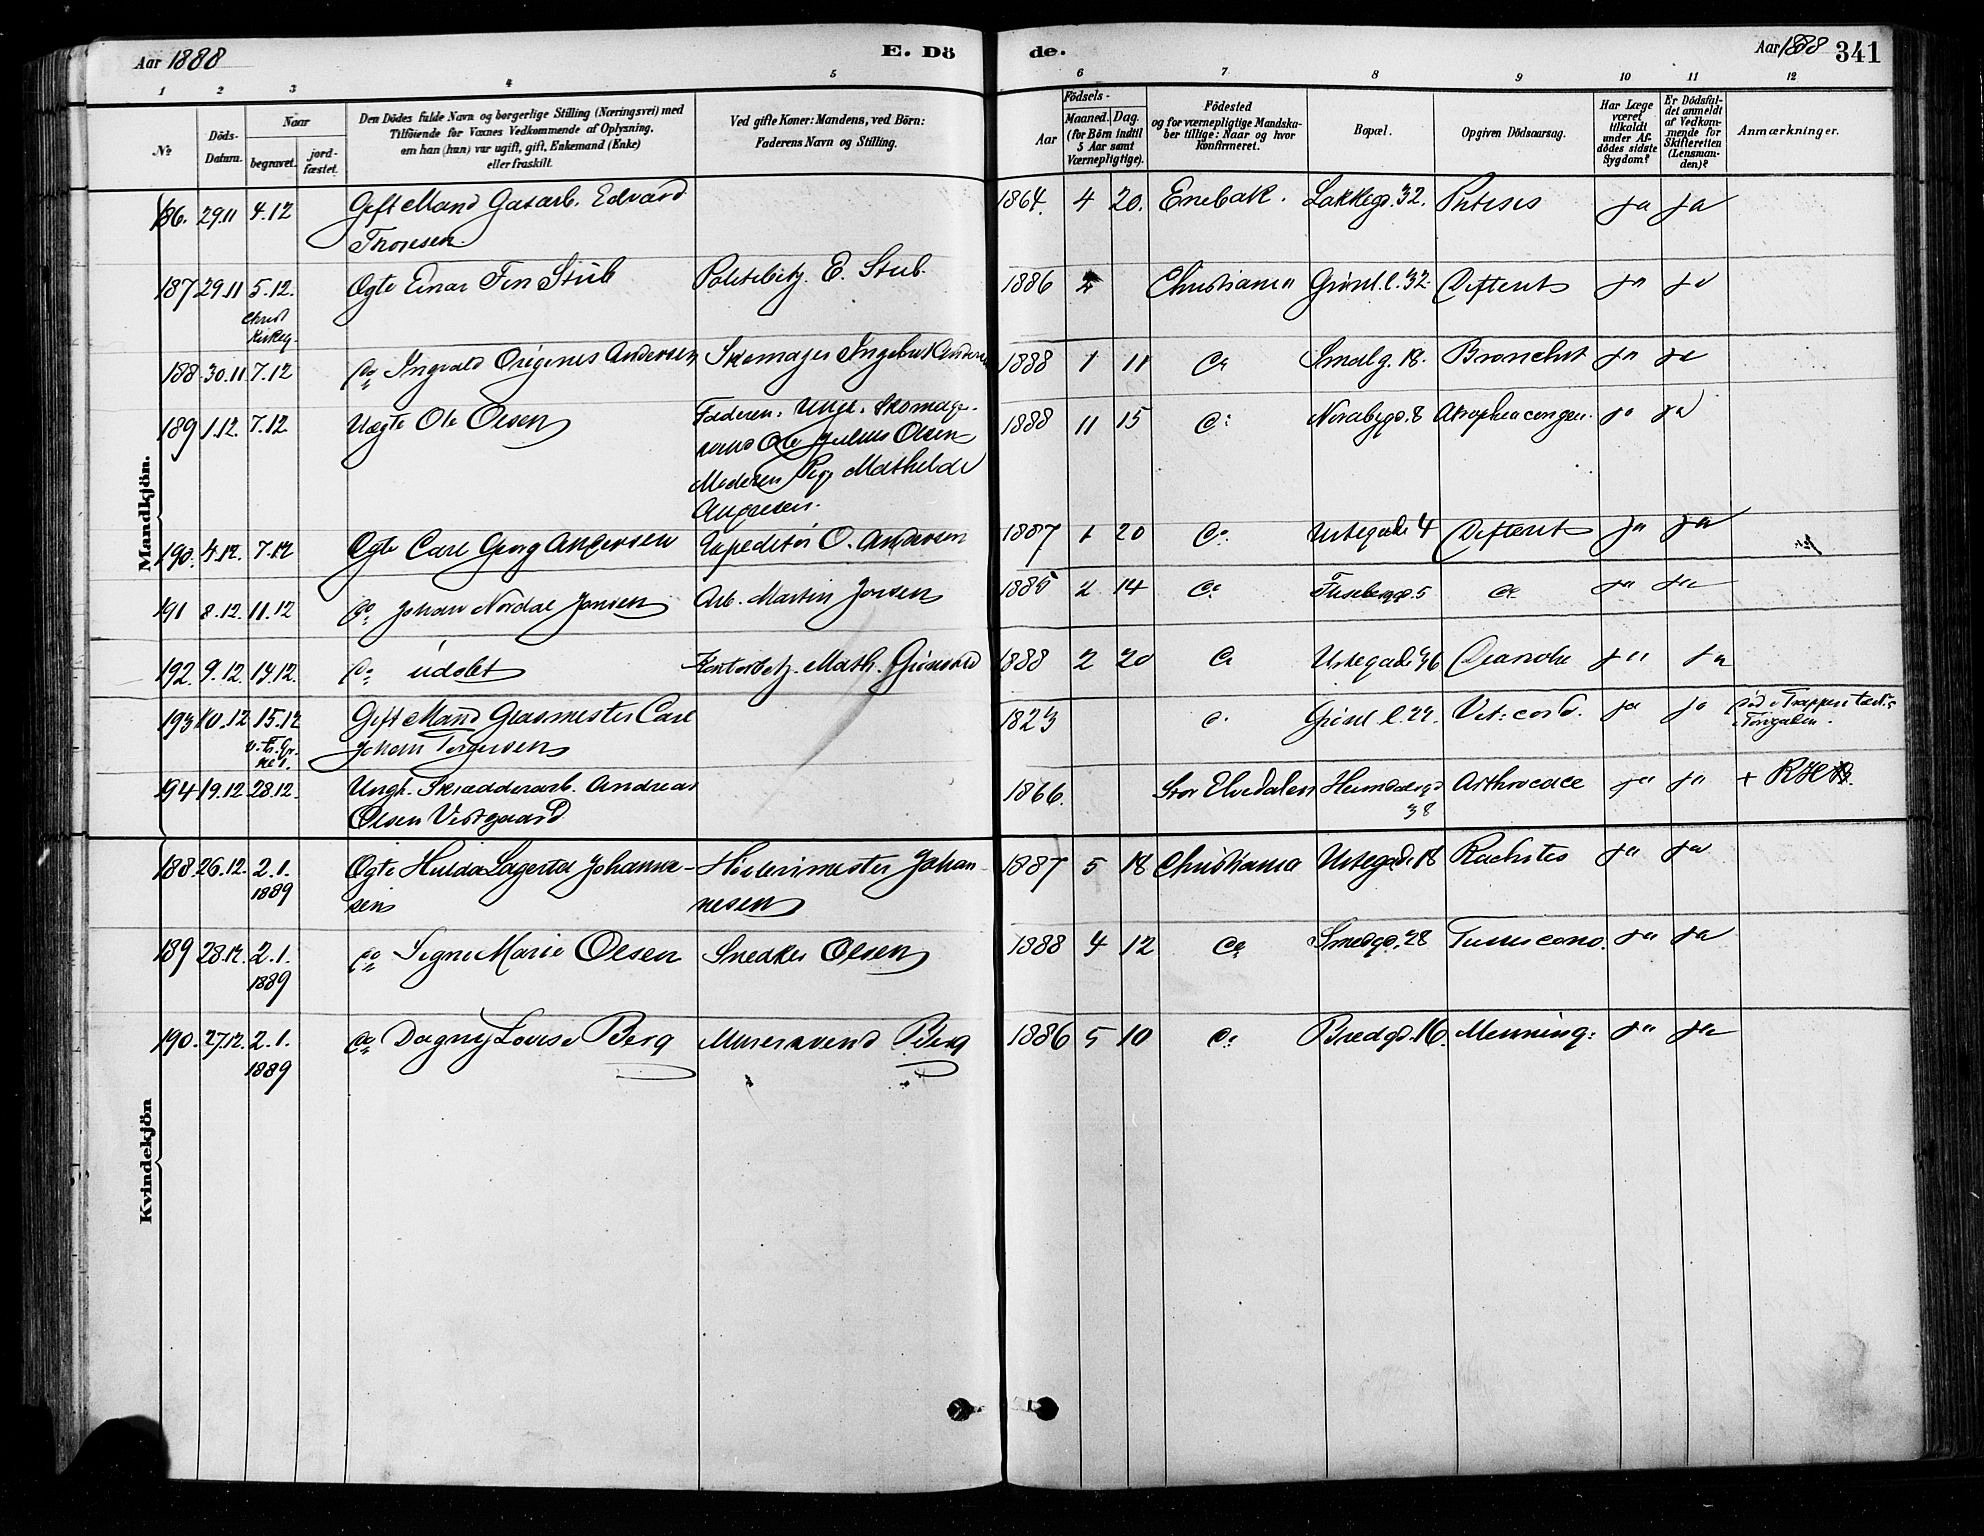 Aar 1888
E. Dö
de.
Aar 1888
341
1 2 3 4 5 6 7 8 9 10 11 12
No
Döds-Datum.
Naar
begravet.
jord-fæstet.
Den Dödes fulde Navn og borgerlige Stilling (Næringsvei) med
Tilföiende for Voxnes Vedkommende af Oplysning,
om han (hun) var ugift, gift, Enkemand (Enke)
eller fraskilt.
Ved gifte Koner: Mandens, ved Börn:
Faderens Navn og Stilling.
Födsels-
Aar
Maaned. Dag.
(for Börn indtil
5 Aar samt
Værnepligtige).
Födested
og for værnepligtige Mandska-
ber tillige: Naar og hvor
konfirmeret.
Bopæl.
Opgiven Dödsaarsag.
Har Læge
været
tilkaldt
under Af-
dödes sidste
Sygdom?
Er Dödsfal-
det anmeldt
af Vedkom-
mende for
Skifteretten
(Lensman-
den)?
Anmærkninger.
Mandkjön.
186. 29.11 4.12 Gift Mand Gasarb. Edvard 1864. 4 20. Enebak. Lakkegd. 32. Phtisis ja ja
Thoresen.
187 29.11 5.12. Ægte Einar Fin Stub Politibetj. E. Stub. 1886 2 Christiania Grønl. l. 32. Difterit ja ja
Christ
Kirkeg.
188. 30.11 7.12 do Ingvald Origenes Andersen Skomager Ingebret Andersen 1888 1 11 do Smalg. 18. Bronchit ja ja
189 1.12. 7.12. Uægte Ole Olsen Faderen: Unge. Skomage- 1888 11 15 do Norabygd. 8 Atrophia congen. ja ja
svend Ole Julius Olsen
Moderen Pige Mathilde
Andresen.
190. 4.12. 7.12 Ægte Carl Georg Andersen Expeditør O. Andersen 1887 1 20 do Urtegade 4 Difterit ja ja
191 8.12. 11.12 do Johan Nordal Jonsen Arb. Martin Jonsen 1885 2 14 do 5 do ja ja
192. 9.12. 14.12. do udøbt Kontorbetj. Math. Grønvold 1888 2 20 do Urtegade 36 Diarrhe ja ja
193 10.12 15.12 Gift Mand Glasmester Carl 1823 do Grønl. l. 27. Vit: cord. ja ja Død i Trappen
Johan Torgersen
194 19.12 28.12. Ungk. Skrædderarb. Andreas 1866. Stor Elvedalen Heimdalsgd 38 Arthrocace ja ja + RH
Olsen Vestgaard
Kvindekjön
188 26.12. 2.1. 1889 Ægte Hulda Lagerta Johanne- Hølerimester Johan- 1887 5 18 Christiania Urtegade 18 Rachitis ja ja
sen nesen
189 28.12. 2.1. 1889 do Signe Marie Olsen Snedker Olsen 1888 4 12 do Smedgd. 28 Tussis conv. ja ja
190. 27.12. 2.1. 1889 do Dagny Lovise Berg Murersvend Berg 1886 5 10 do Bredgd. 16. Menning: ja ja